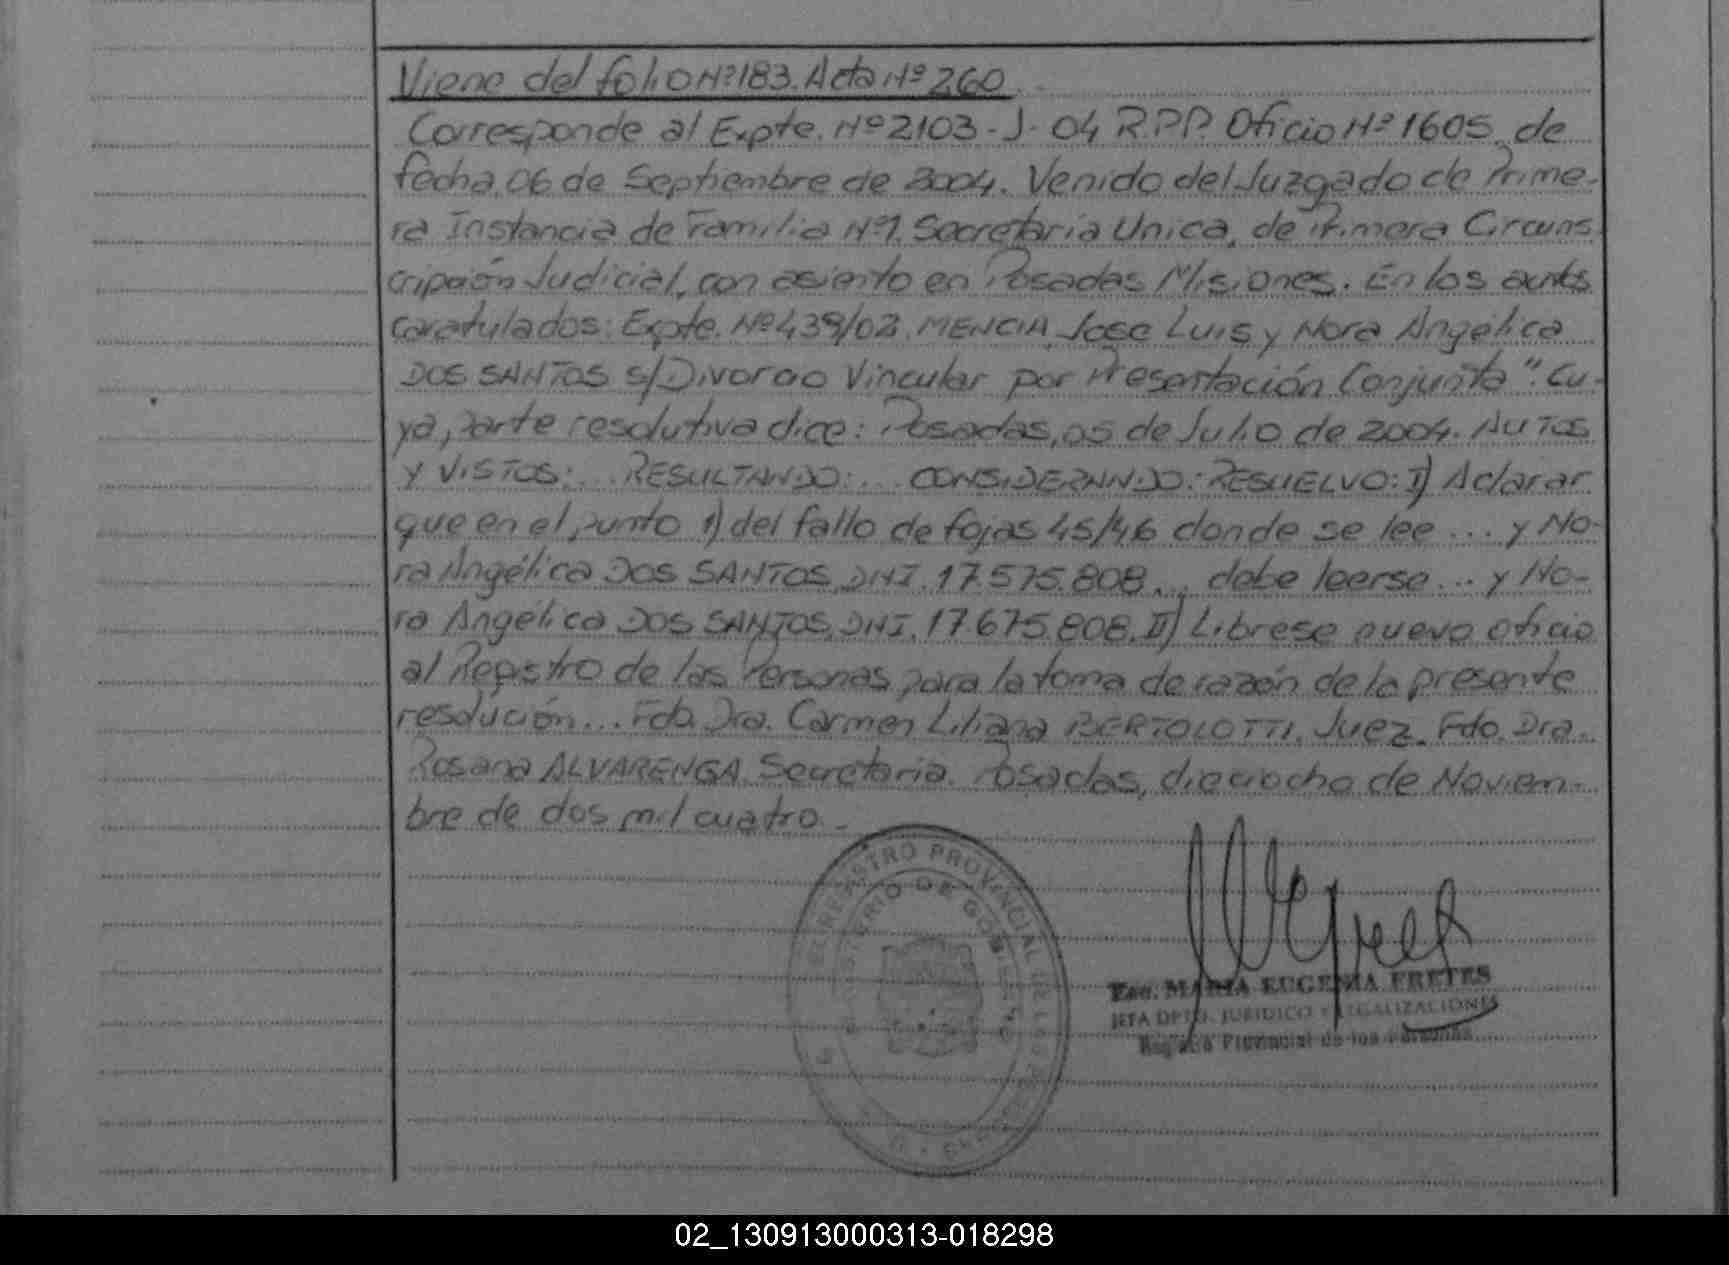 Viene del folio Nº 183. Acta Nº 260
Corresponde al Expte. Nº 2103-J-04 R.P.P. Oficio Nº 1605, de
fecha, 06 de Septiembre de 2004. Venido del Juzgado de Prime-
ra Instancia de Familia Nº1, Secretaría Unica, de Primera Circuns
cripción Judicial, con asiento en Posadas Misiones. En los autos
caratulados: Expte. Nº 439/02. MENCIA, Jose Luis y Nora Angélica
DOS SANTOS s/Divorcio Vincular por Presentación Conjunta". Cu-
ya, parte resolutiva dice: Posadas, 05 de Julio de 2004. AUTOS
Y VISTOS:... RESULTANDO:... CONSIDERANDO: RESUELVO: I) Aclarar
que en el punto 1) del fallo de fojas 45/46 donde se lee... y No-
ra Angélica DOS SANTOS, DNI. 17.575.808... debe leerse... y No-
ra Angélica DOS SANTOS, DNI. 17.675.808. II) Librese nuevo oficio
al Registro de las Personas para la toma de razón de la presente
resolución... Fdo. Dra. Carmen Liliana BERTOLOTTI. Juez. Fdo. Dra.
Rosana ALVARENGA. Secretaria. Posadas, dieciocho de Noviem-
bre de dos mil cuatro.-
REGISTRO PROVINCIAL DE LAS PERSONAS
MINISTERIO DE GOBIERNO
Esc. MARIA EUGENIA FRETES
JEFA DPTO. JURIDICO Y LEGALIZACIONES
Registro Provincial de las Personas
02_130913000313-018298